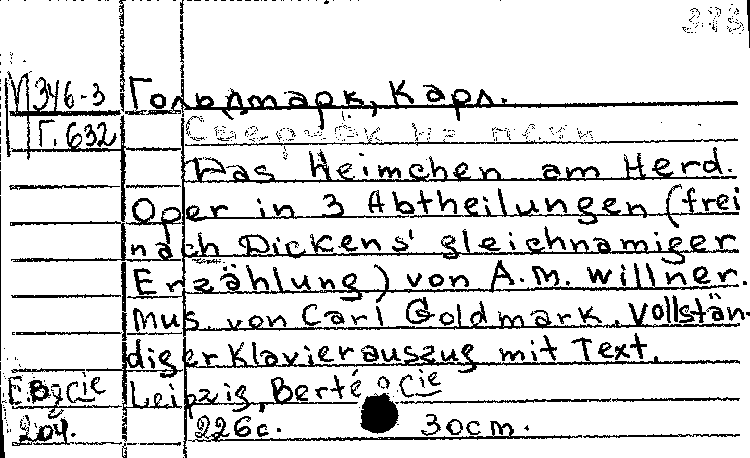 М346-3 Гольдмарк, Карл.
Г.632 Сверчок на печи
Das Heimchen am Herd.
Oper in 3 Abtheilungen (frei
nach Dickens' gleichnamiger
Erzählung) von A.M. Willner.
Mus. von Carl Goldmark. Vollstän-
diger Klavierauszug mit Text.
Leipzig, Berté & Cie
204. 226с. 30cm.